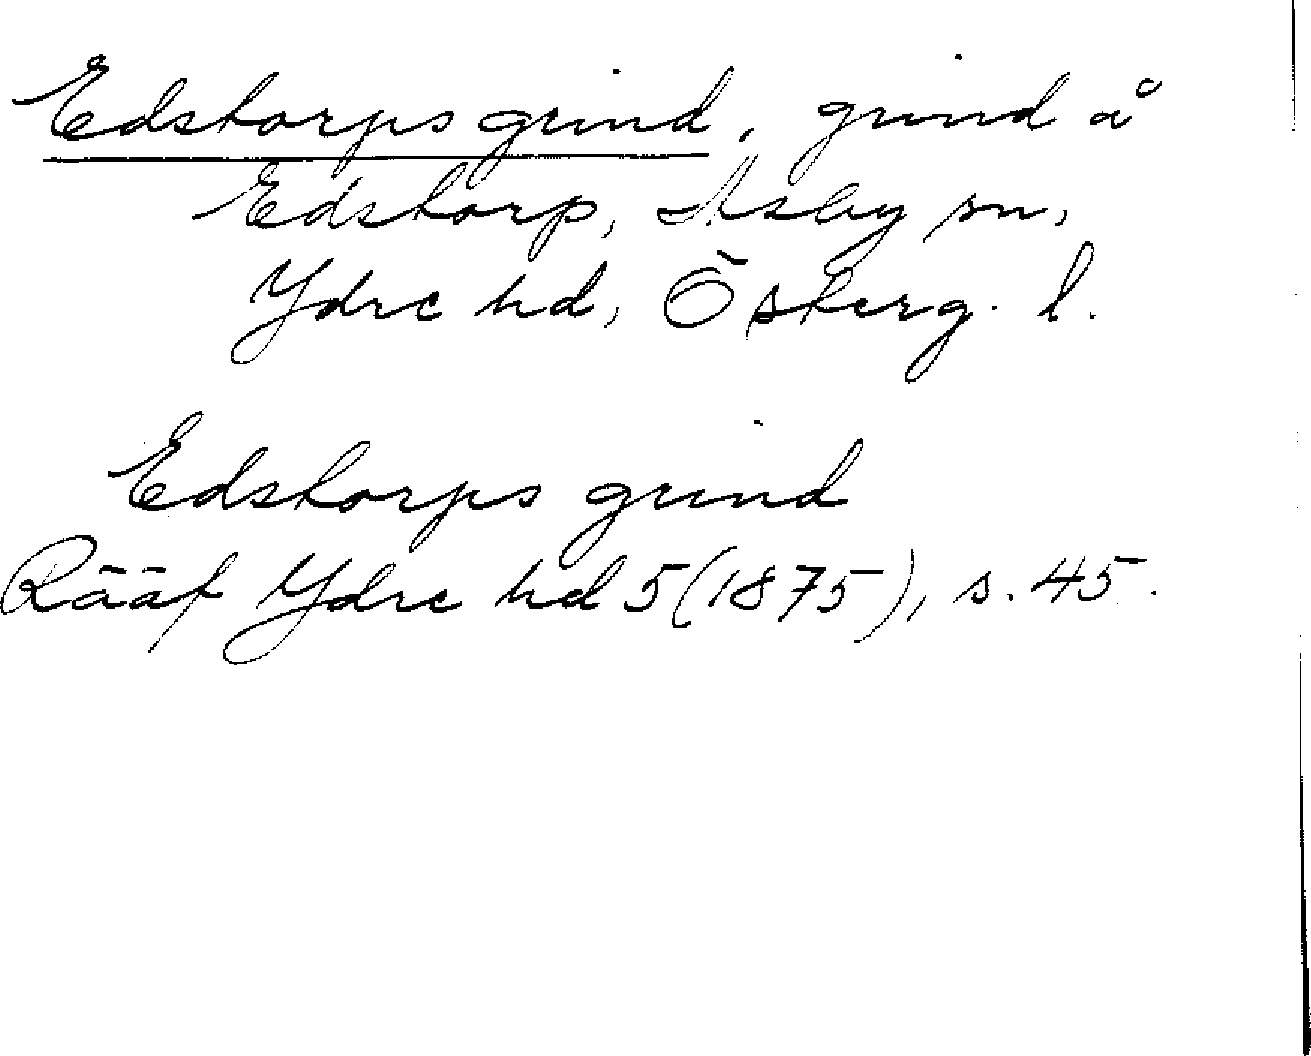 Edstorps grind, grind å
Edstorp, Asby sn,
Ydre hd, Österg. l.
Edstorps grind
Rääf Ydre hd 5 (1875), s. 45.